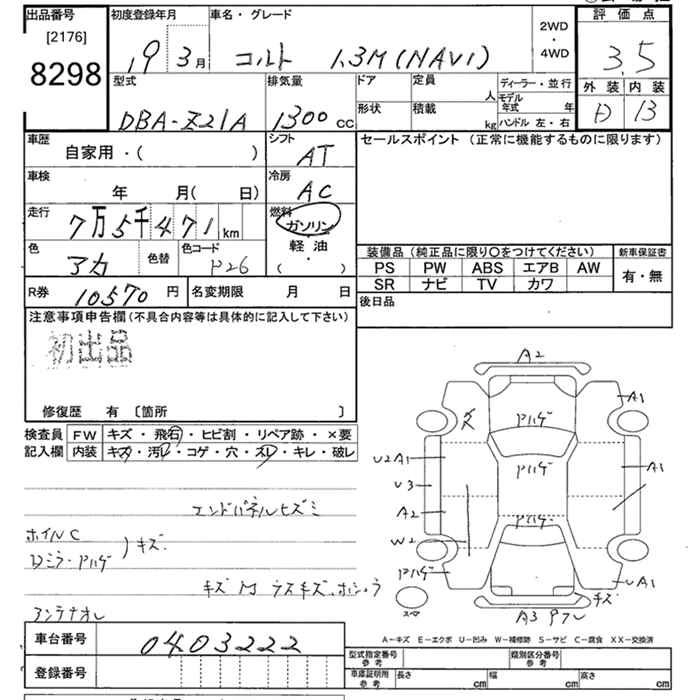 出品番号 初度登録年月 車名・グレード 2WD・4WD 評価点
[2176]
8298 19 3月 コルト 1.3M(NAVI) 3.5
型式 排気量 ドア 定員 人 ディーラー・並行 外装 内装
モデル年式 年
DBA-Z21A 1300cc 形状 積載 kg ハンドル 左・右 D B
車歴 シフト セールスポイント (正常に機能するものに限ります)
自家用・( ) AT
車検 冷房
年 月( 日) AC
走行 燃料
7万5千471km ガソリン
色 色替 色コード 軽油 装備品 (純正品に限り○をつけてください) 新車保証書
アカ P26 ( ・ ) PS PW ABS エアB AW 有・無
R券 10570円 名変期限 月 日 SR ナビ TV カワ
後日品
注意事項申告欄(不具合内容等は具体的に記入して下さい)
初出品
修復歴 有 〔箇所 〕
検査員 FW キズ・飛石・ヒビ割・リペア跡・×要
記入欄 内装 キズ・汚レ・コゲ・穴・スレ・キレ・破レ
エンドパネルヒズミ
ホイルC
Dミラ・Pハゲ )キズ
キズ M ラスキズ、ホショウ
アンテナオレ
A2
A1
Pハゲ
U2A1
Pハゲ
A1
U3
A2
Pハゲ
W2
Pハゲ
UA1
キズ
スマ
A3
車台番号 0403222
登録番号
A−キズ E−エクボ U−凹み W−補修跡 S−サビ C−腐食 XX−交換済
型式指定番号 参考 類別区分番号 参考
車庫証明用 参考 長さ cm 幅 cm 高さ cm